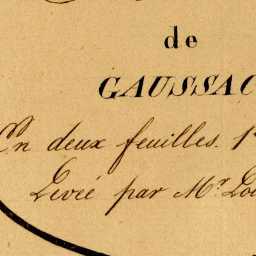 de
GAUSSAC
En deux feuilles. 1
Levé par Mr. Lou